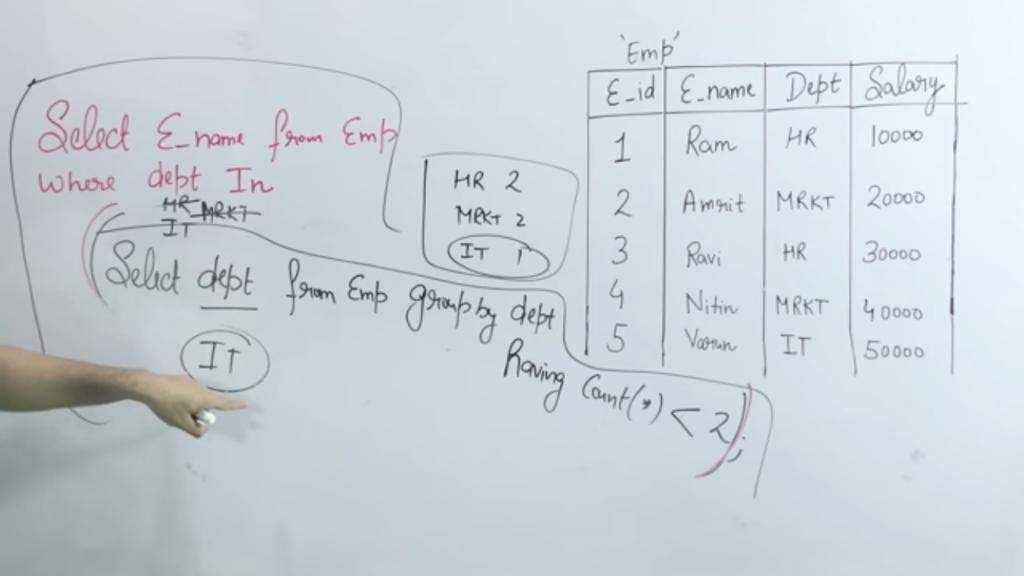 Select E_name from Emp
where dept In
HR MRKT
IT
(Select dept from Emp group by dept
Having Count(*) < 2);
IT
HR 2
MRKT 2
IT 1
'Emp'
E_id E_name Dept Salary
1 Ram HR 10000
2 Amrit MRKT 20000
3 Ravi HR 30000
4 Nitin MRKT 40000
5 Varun IT 50000